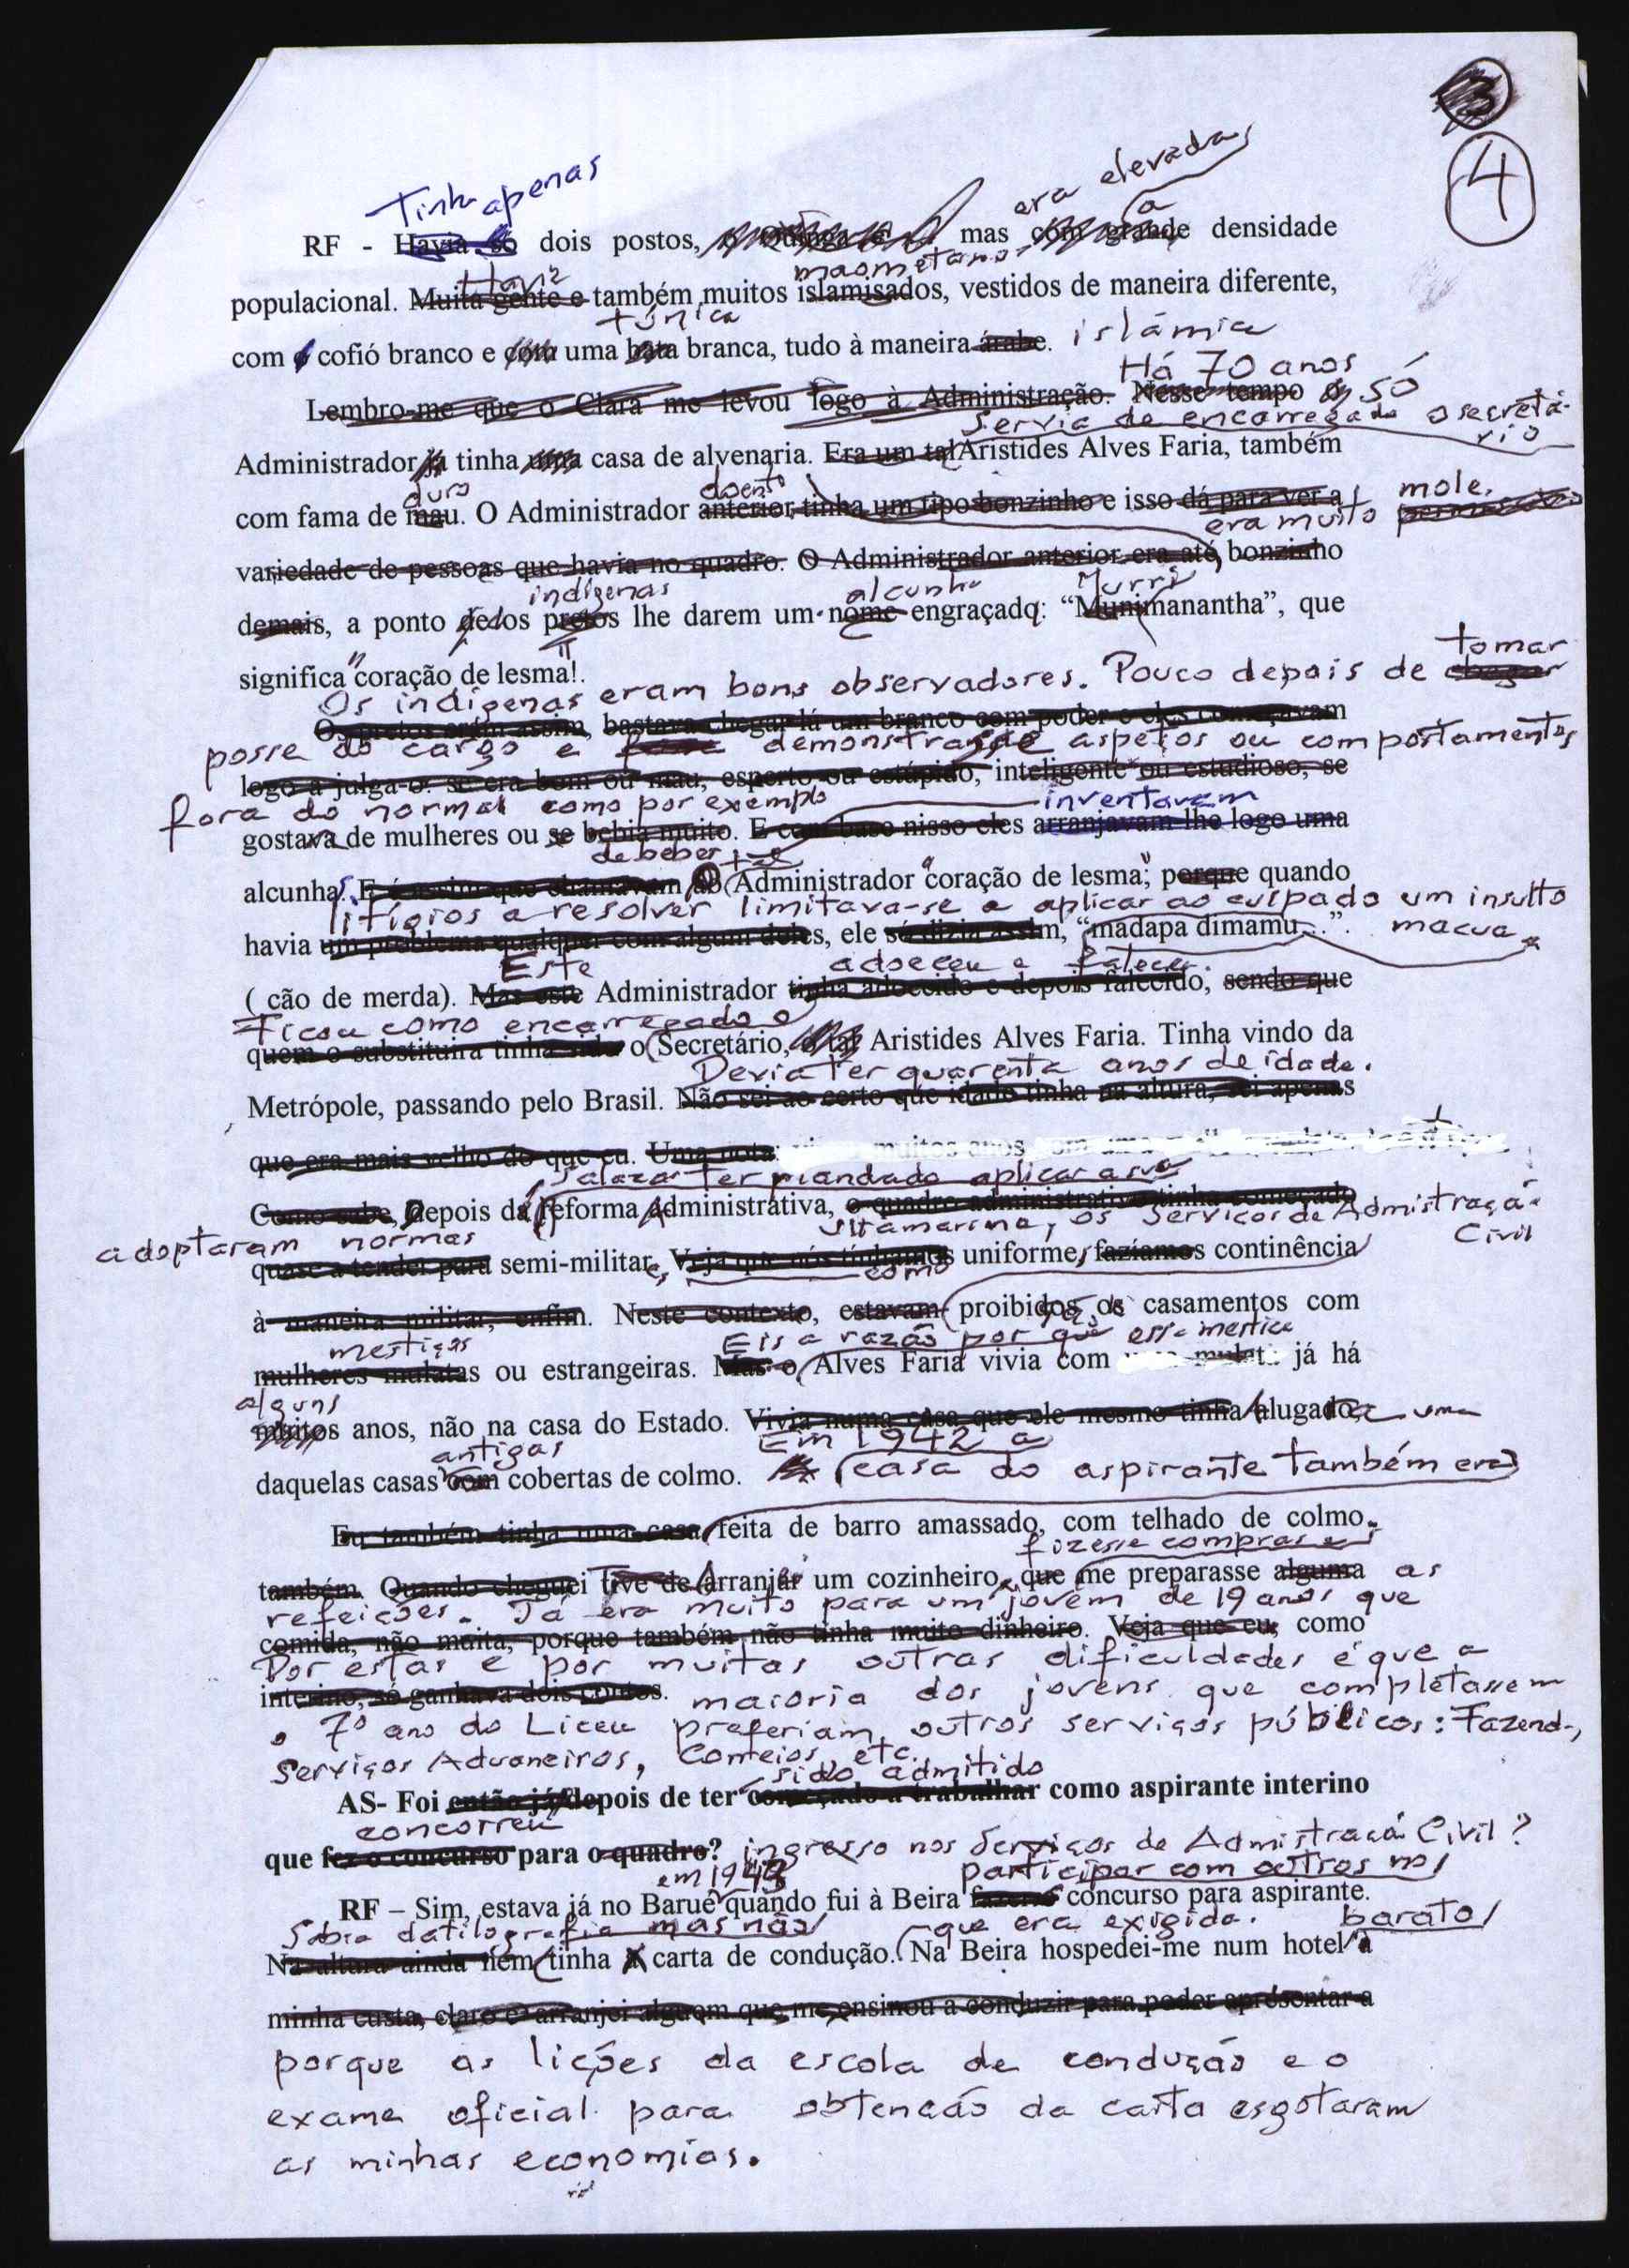 3
4
Tinha apenas
era elevada a
RF - Havia só dois postos, mas com grande densidade
Havia
maometanos
populacional. Muita gente e também muitos islamisados, vestidos de maneira diferente,
túnica
com o cofió branco e com uma bata branca, tudo à maneira árabe. islâmica
Há 70 anos
Lembro-me que o Clara me levou logo à Administração. Nesse tempo o só
Servia de encarregado o secretário
Administrador já tinha uma casa de alvenaria. Era um tal Aristides Alves Faria, também
duro
doente
mole.
com fama de mau. O Administrador anterior tinha um tipo bonzinho e isso dá para ver a
era muito
variedade de pessoas que havia no quadro. O Administrador anterior era até bonzinho
indígenas
alcunha
Murri
demais, a ponto de os pretos lhe darem um nome engraçado: “Munimanantha”, que
significa "coração de lesma"!.
Os indígenas eram bons observadores. Pouco depois de chegar tomar
Os pretos eram assim, bastava chegar lá um branco com poder e eles começavam
posse do cargo e demonstrasse aspetos ou compostamentos
logo a julga-o: se era bom ou mau, esperto ou estúpido, inteligente ou estudioso, se
fora do normal como por exemplo
inventavam
gostava de mulheres ou se bebia muito. E com base nisso eles arranjavam lhe logo uma
de beber
tal
alcunha. E é assim que chamavam ao Administrador "coração de lesma", porque quando
litígios a resolver limitava-se a aplicar ao culpado um insulto
havia um problema qualquer com algum deles, ele só dizia assim, “madapa dimamu...”. macua
Este
adoeceu e faleceu.
( cão de merda). Mas este Administrador tinha adoecido e depois falecido, sendo que
Ficou como encarregado o
quem o substituira tinha sido o Secretário, o tal Aristides Alves Faria. Tinha vindo da
Devia ter quarenta anos de idade.
Metrópole, passando pelo Brasil. Não sei ao certo que idade tinha na altura, sei apenas
que era mais velho do que eu. Uma nota: muitos anos
Salazar ter mandado aplicar a sua
Como sabe, Depois da reforma Administrativa, o quadro administrativo tinha começado
Ultamarina, os Serviços de Admistração Civil
adoptaram normas
quase a tender para semi-militar. Veja que nós tínhamos uniforme, fazíamos continência
como
à maneira militar, enfim. Neste contexto, estavam proibidos os casamentos com
mestiças
Eis a razão por que
essa mestiça
mulheres mulatas ou estrangeiras. Mas o Alves Faria vivia com uma mulata já há
alguns
muitos anos, não na casa do Estado. Vivia numa casa que ele mesmo tinha alugado uma
antigas
Em 1942 a
daquelas casas com cobertas de colmo. casa do aspirante também era
Eu também tinha uma casa feita de barro amassado, com telhado de colmo.
fizesse compras e
também. Quando cheguei Tive de Arranjar um cozinheiro, que me preparasse alguma as
refeições. Já era muito para um jovem de 19 anos que
comida, não muita, porque também não tinha muito dinheiro. Veja que eu, como
Por estas e por muitas outras dificuldades é que a
interino, só ganhava dois contos. maioria dos jovens que completassem
o 7º ano do Liceu preferiam outros serviços públicos: Fazend-,
Serviços Aduaneiros, Correios, etc.
sido admitido
AS- Foi então já depois de ter começado a trabalhar como aspirante interino
concorreu
que fez o concurso para o quadro? ingresso nos Serviços de Admistração Civil?
em 1943
participar com outros no
RF – Sim, estava já no Barué quando fui à Beira fazer o concurso para aspirante.
Sabia datilografia mas não
que era exigida.
barato
Na altura ainda nem tinha a carta de condução. Na Beira hospedei-me num hotel à
minha custa, claro e arranjei alguem que me ensinou a conduzir para poder apresentar a
porque as lições da escola de condução e o
exame oficial para obtenção da carta esgotaram
as minhas economias.